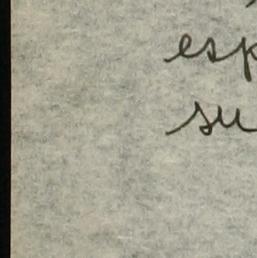 esp
su